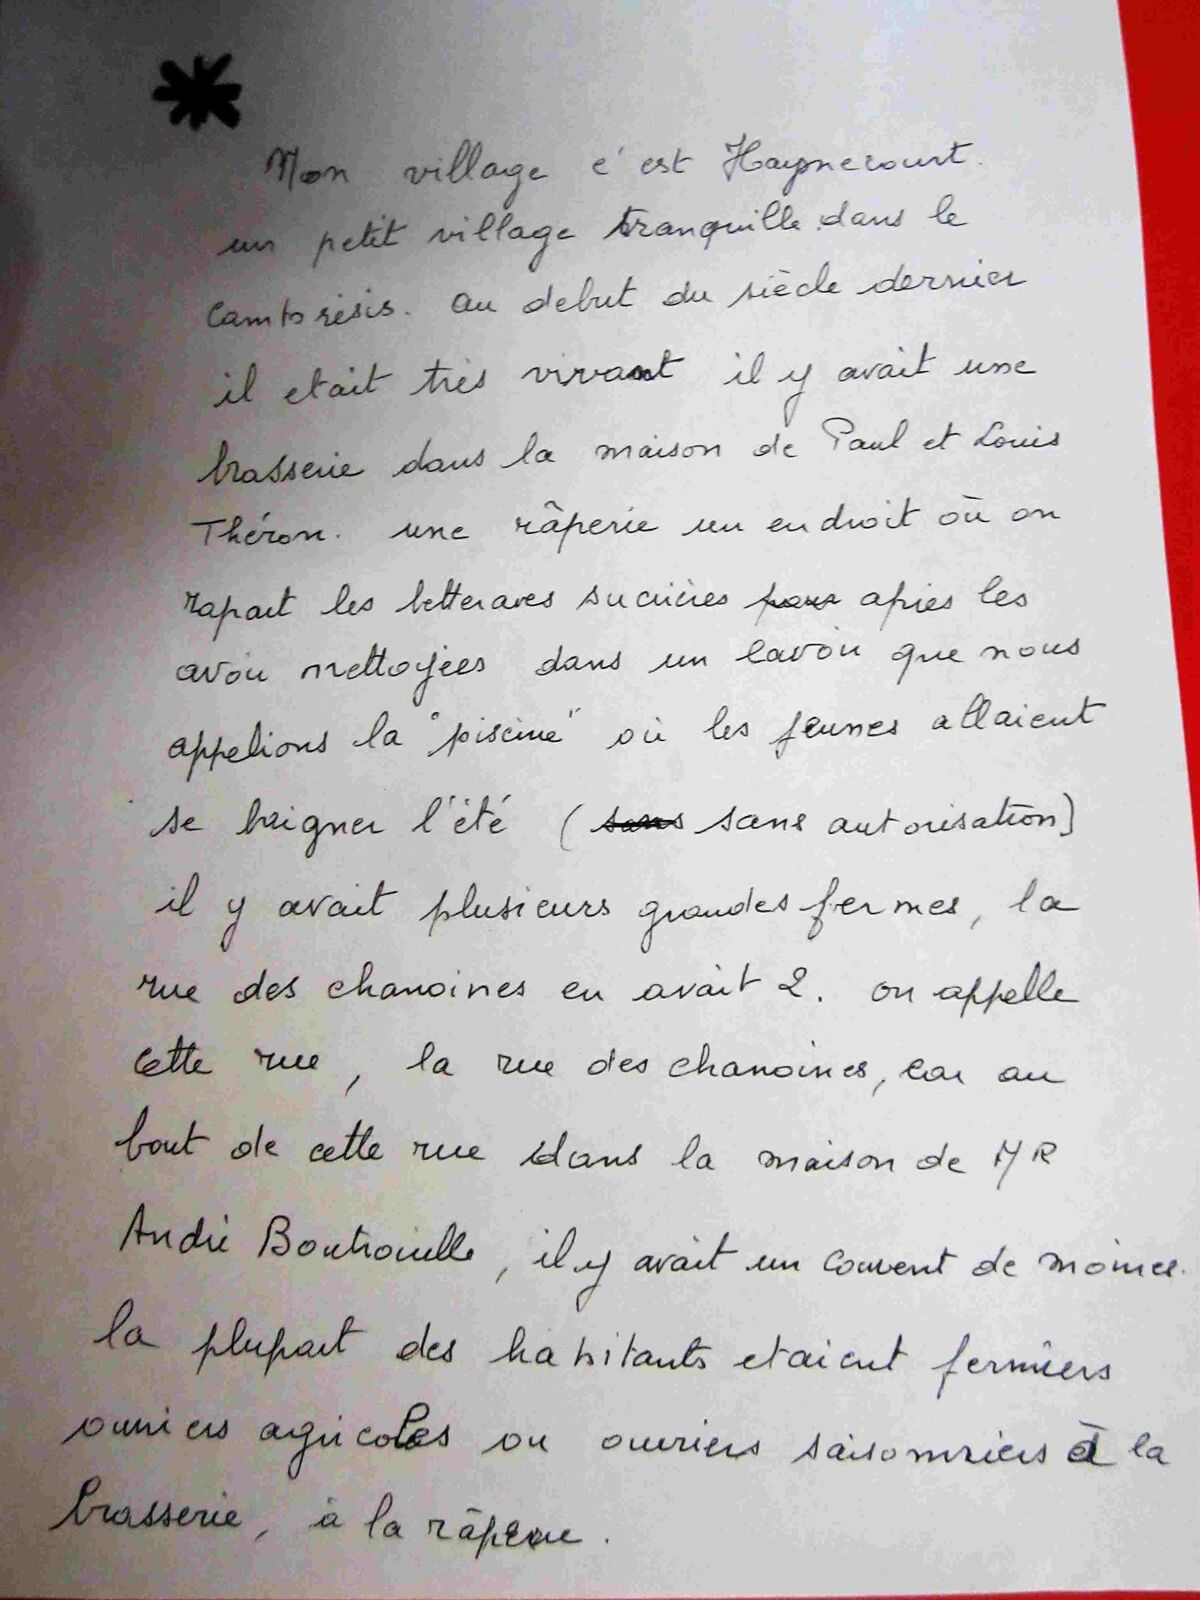 Mon village c'est Haynecourt.
un petit village tranquille dans le
cambrésis. au debut du siècle dernier
il etait très vivant il y avait une
brasserie dans la maison de Paul et Louis
Théron. une râperie un endroit où on
rapait les betteraves sucrières pour après les
avoir nettoyées dans un lavoir que nous
appelions la "piscine" où les jeunes allaient
se baigner l'été ( sans sans autorisation)
il y avait plusieurs grandes fermes, la
rue des chanoines en avait 2. on appelle
cette rue, la rue des chanoines, car au
bout de cette rue dans la maison de MR
André Boutrouille, il y avait un couvent de moines.
la plupart des habitants etaient fermiers
ouvriers agricoles ou ouvriers saisonniers à la
brasserie, à la râperie.